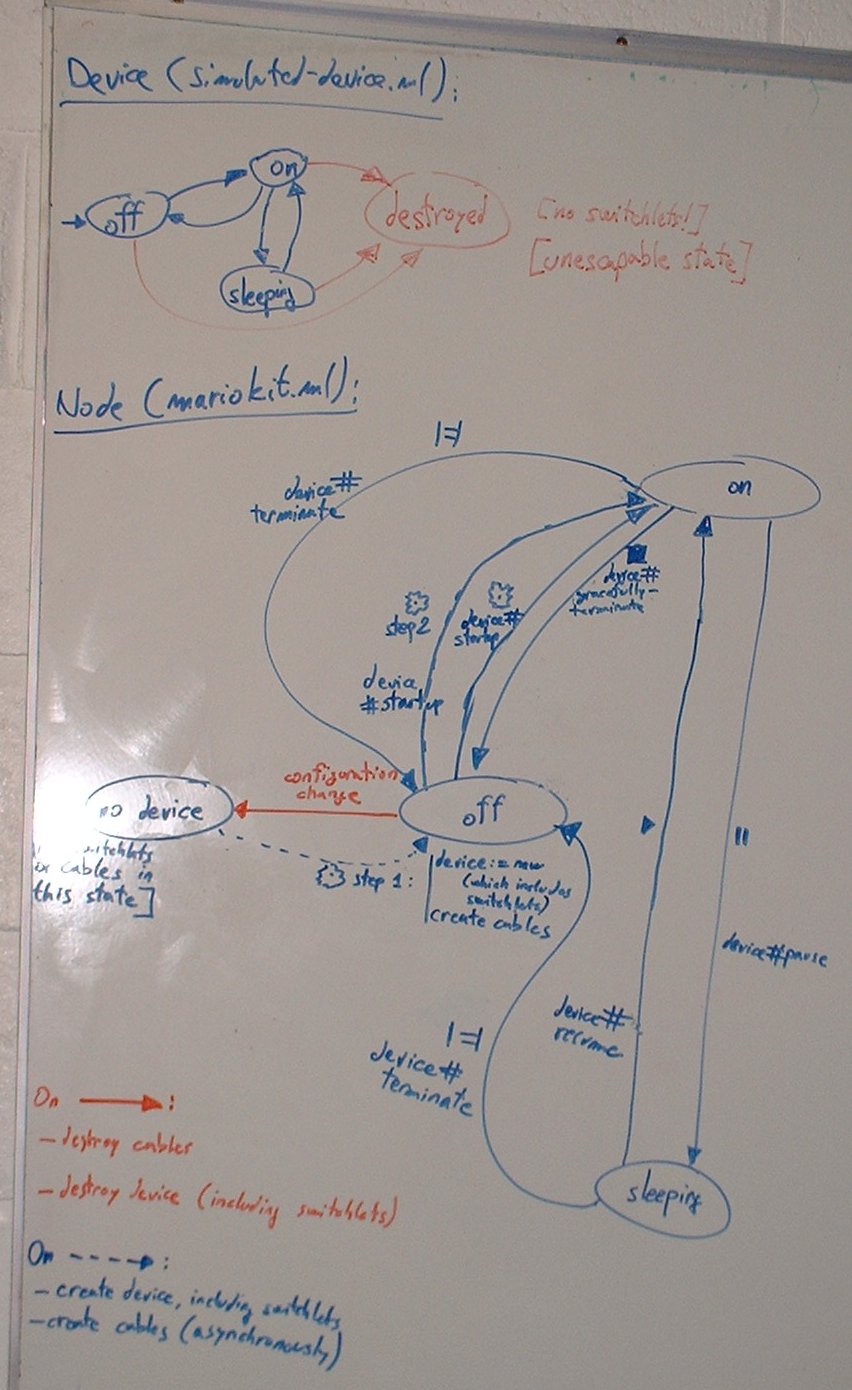 Device (simulated-device.ml):
on
off
destroyed
[no switchlets!]
[unescapable state]
sleeping
Node (mariokit.ml):
on
device#
terminate
device#
gracefully-
terminate
step 2
device#
startup
device
#startup
configuration
change
no device
off
switchlets
cables in
this state]
step 1:
device:= new
(which includes
switchlets)
create cables
device#pause
device#
resume
device#
terminate
sleeping
On :
- destroy cables
- destroy device (including switchlets)
On :
- create device, including switchlets
- create cables (asynchronously)